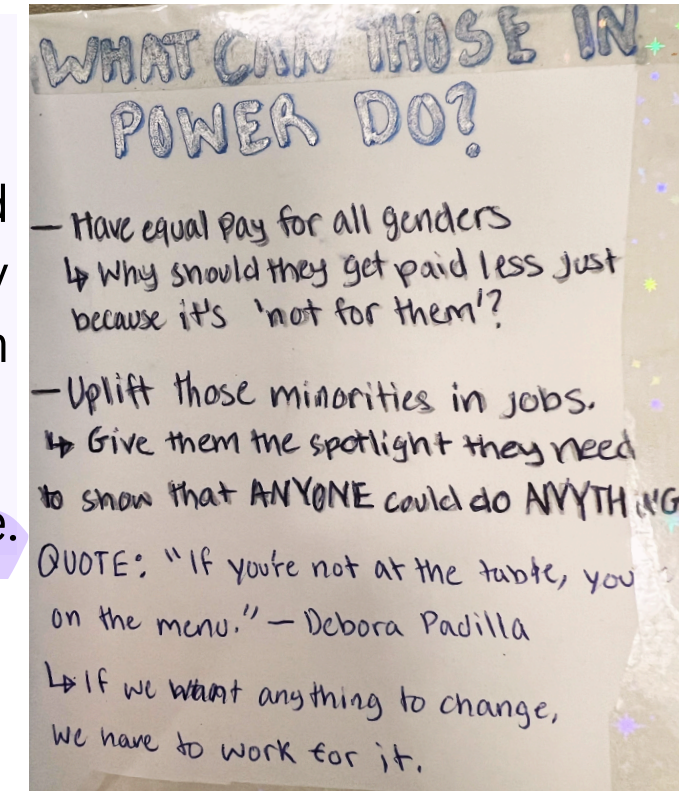 WHAT CAN THOSE IN
POWER DO?
— Have equal pay for all genders
↳ Why should they get paid less just
because it's 'not for them'?
— Uplift those minorities in jobs.
↳ Give them the spotlight they need
to show that ANYONE could do ANYTHING
QUOTE: "If you're not at the table, you
on the menu." — Debora Padilla
↳ If we want anything to change,
we have to work for it.